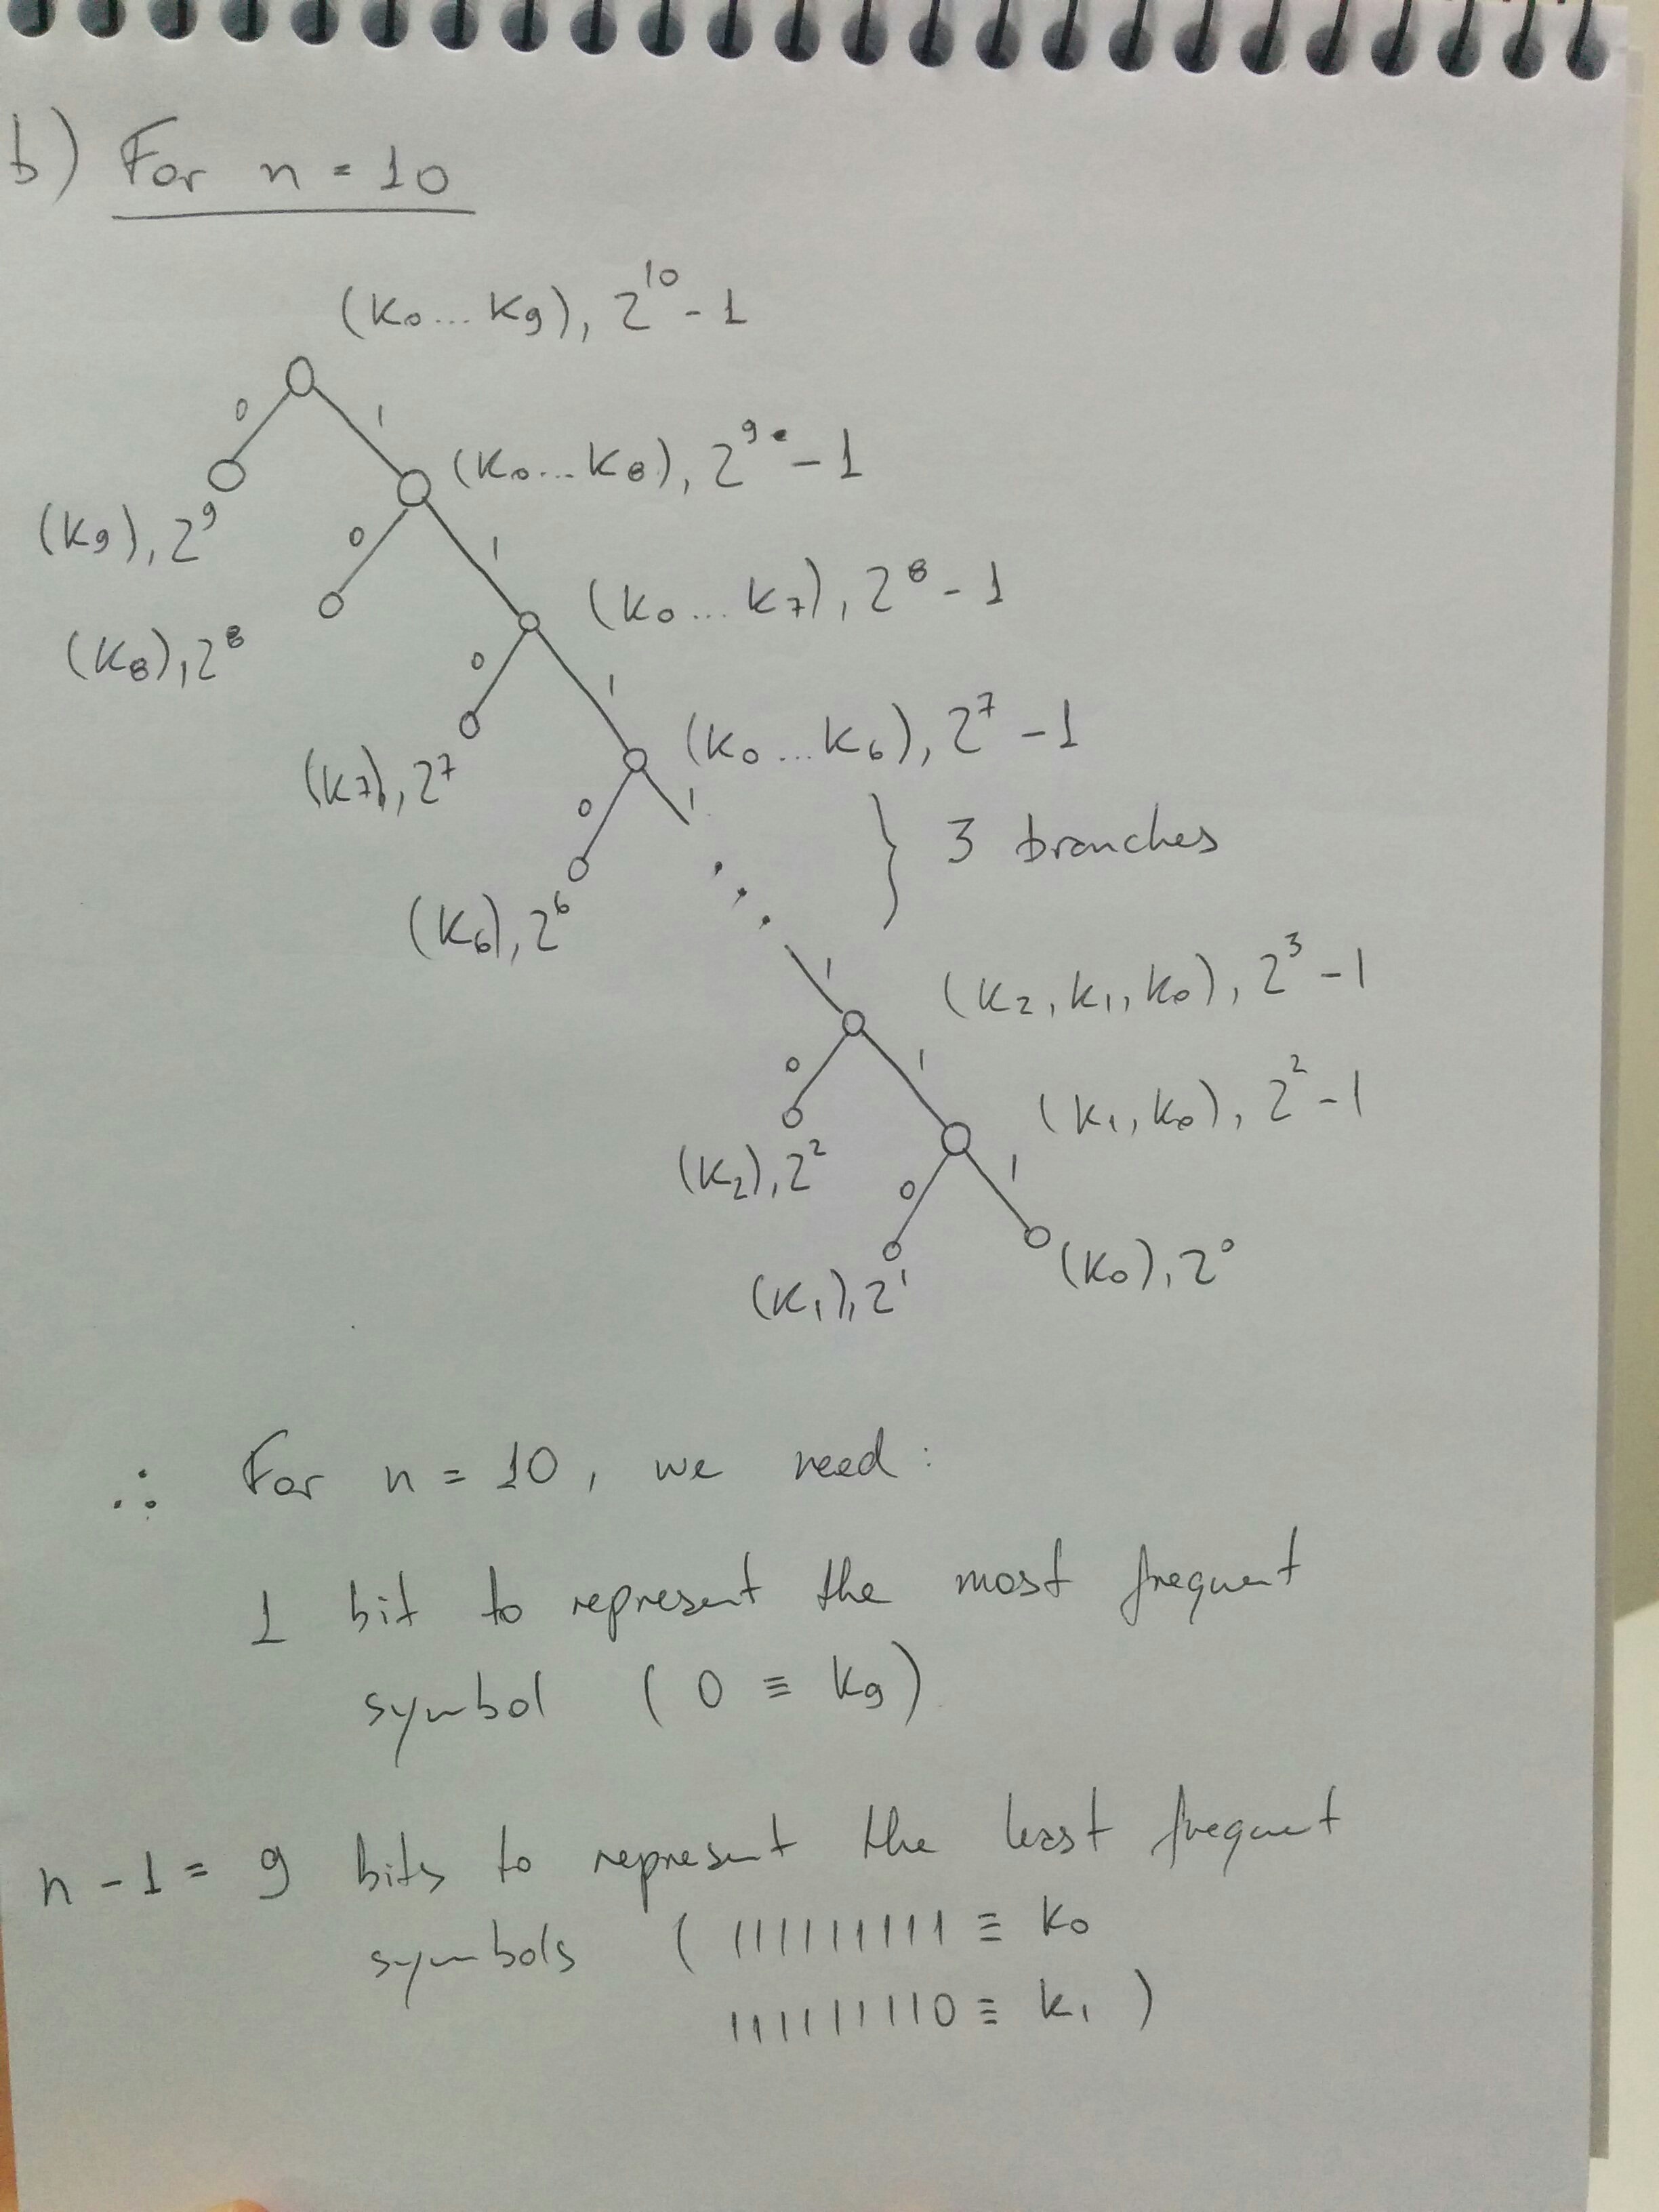 b) For n = 10
(K₀...K₉), 2¹⁰ - 1
0 1
(K₀...K₈), 2⁹ - 1
(K₉), 2⁹
0 1
(K₀...K₇), 2⁸ - 1
(K₈), 2⁸
0 1
(K₀...K₆), 2⁷ - 1
(K₇), 2⁷
0 1
} 3 branches
(K₆), 2⁶
1
(K₂, K₁, K₀), 2³ - 1
0 1
(K₁, K₀), 2² - 1
(K₂), 2²
0 1
(K₀), 2⁰
(K₁), 2¹
∴ For n = 10, we need:
1 bit to represent the most frequent
symbol ( 0 ≡ K₉)
n - 1 = 9 bits to represent the least frequent
symbols ( 111111111 ≡ K₀
111111110 ≡ K₁ )